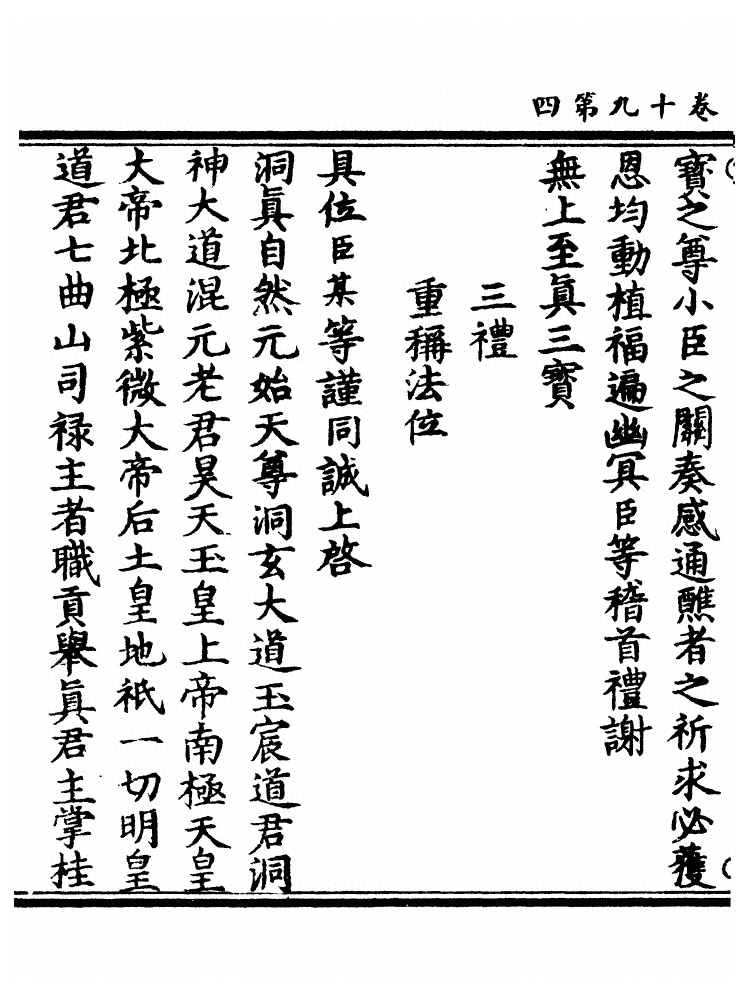 卷十九第四
寶之尊小臣之關奏感通醮者之祈求必獲
恩均動植福遍幽冥臣等稽首禮謝
無上至眞三寶
三禮
重稱法位
具位臣某等謹同誠上啓
洞眞自然元始天尊洞玄大道玉宸道君洞
神大道混元老君昊天玉皇上帝南極天皇
大帝北極紫微大帝后土皇地祇一切明皇
道君七曲山司禄主者職貢舉眞君主掌桂